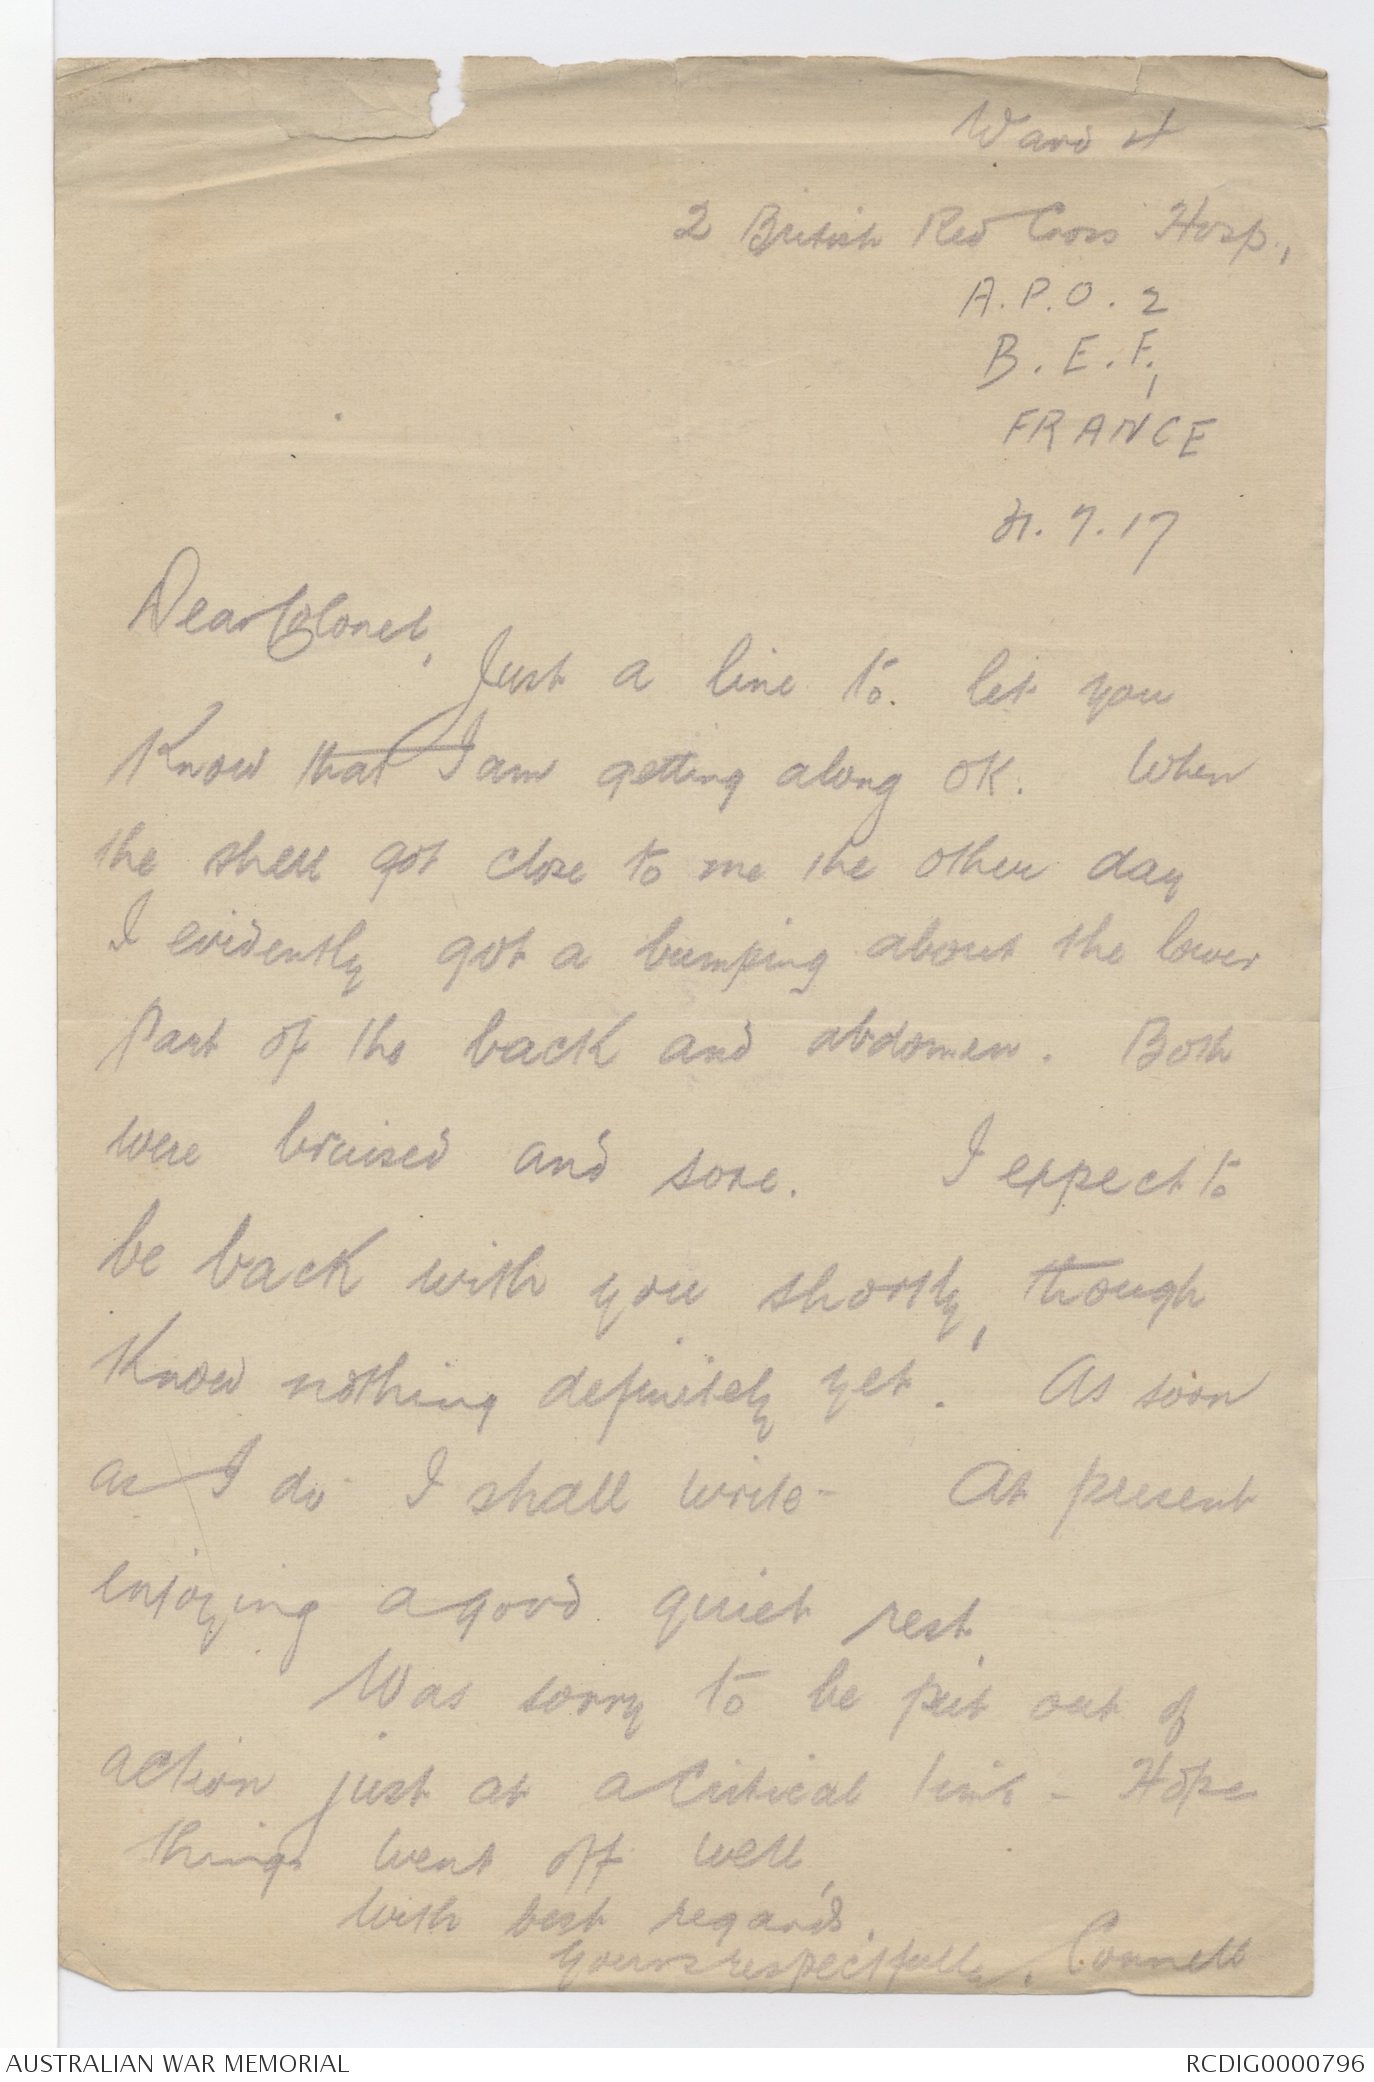 Ward 4
2 British Red Cross Hosp.,
A.P.O. 2
B.E.F.,
FRANCE
31.7.17
Dear Colonel,
Just a line to let you
know that I am getting along OK. When
the shell got close to me the other day
I evidently got a bumping about the lower
part of the back and abdomen. Both
were bruised and sore. I expect to
be back with you shortly, though
know nothing definitely yet. As soon
as I do I shall write - At present
enjoying a good quiet rest.
Was sorry to be put out of
action just at a critical time - Hope
things went off well,
With best regards.
Yours respectfully, Connell
AUSTRALIAN WAR MEMORIAL
RCDIG0000796